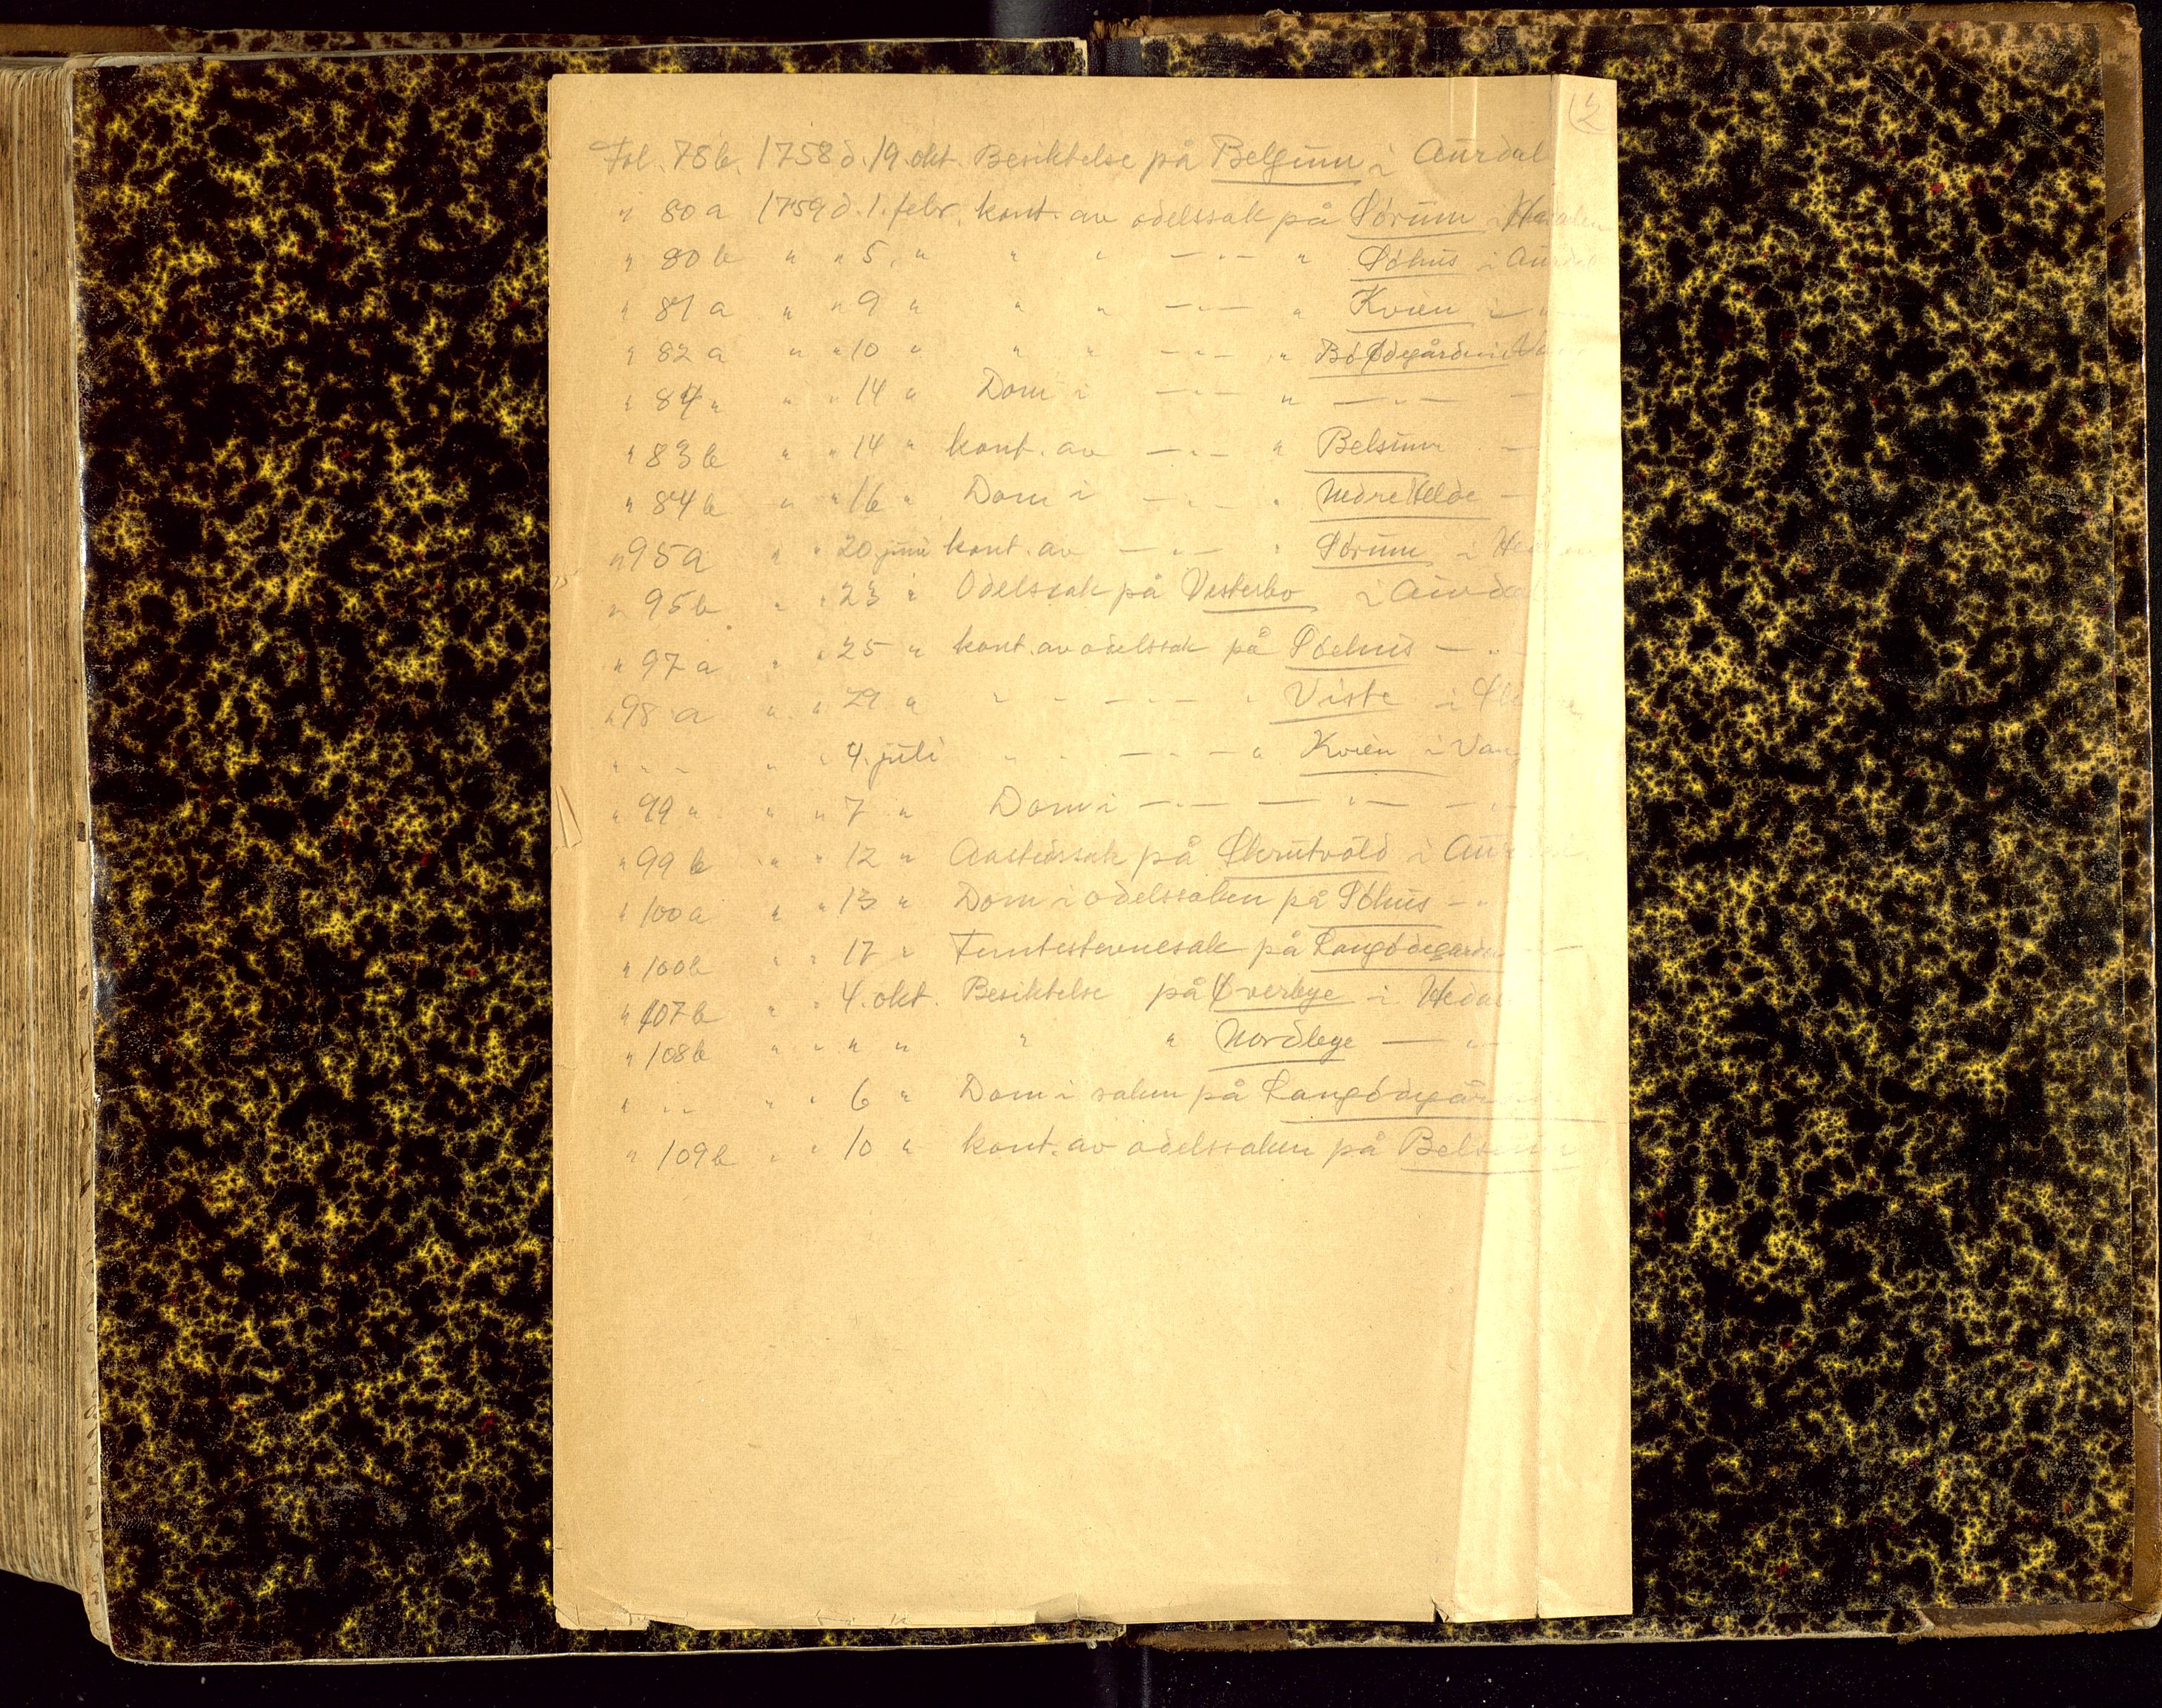 (2
Fol. 78b. 1758 d. 19. okt. Besiktelse på Belgum i Aurdal
" 80a 1759 d. 1. febr. kont. av odelssak på Sörum i Hedalen
" 80b " " 5. " " " —"— " Söhus i Aurdal
" 81a " " 9 " " " —"— " Kvien i "
" 82a " " 10 " " " —"— " Bö Ödegården i
" 84" " " 14 " Dom i —"— " —"— —
" 83b " " 14 " kont. av —"— " Belsum —
" 84b " " 16 " Dom i —"— " Nedre Helde —
" 95a " " 20 juni kont. av —"— " Sörum i
" 95b " " 23 " Odelssak på Vesterbo i Aurdal
" 97a " " 25 " kont. av odelssak på Söehus —"
" 98a " " 29 " " " —"— " Viste i
" " " " " 4. juli " " —"— " Kvien i Vang
" 99" " " 7 " Dom i —"— —"— —"
" 99b " " 12 " Aastedssak på Skrutvold i
" 100a " " 13 " Dom i odelssaken på Söhus —"
" 100b " " 17 " Femtestevnesak på Langödegarden —
" 107b " " 4. okt. Besiktelse på Överbye i Hedal
" 108b " " " " " " Nordbye —"—
" " " " " 6 " Dom i saken på Langödegården
" 109b " " 10 " kont. av odelssaken på Belsum